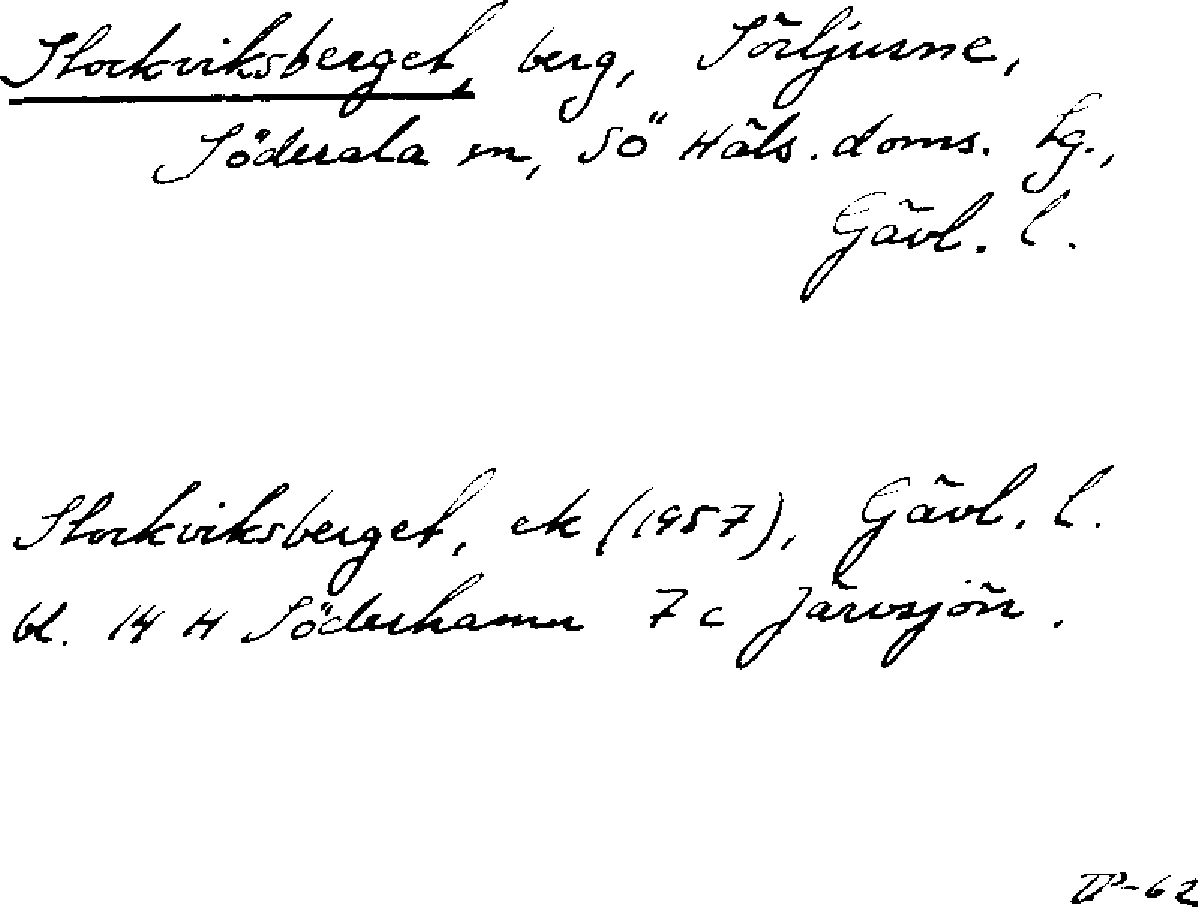 Stockviksberget, berg, Sörljusne,
Söderala sn, Sö Häls. doms. lg.,
Gävl. l.
Stockviksberget, ek (1957), Gävl. l.
bl. 14 H Söderhamn 7 c Järvsjön.
-62